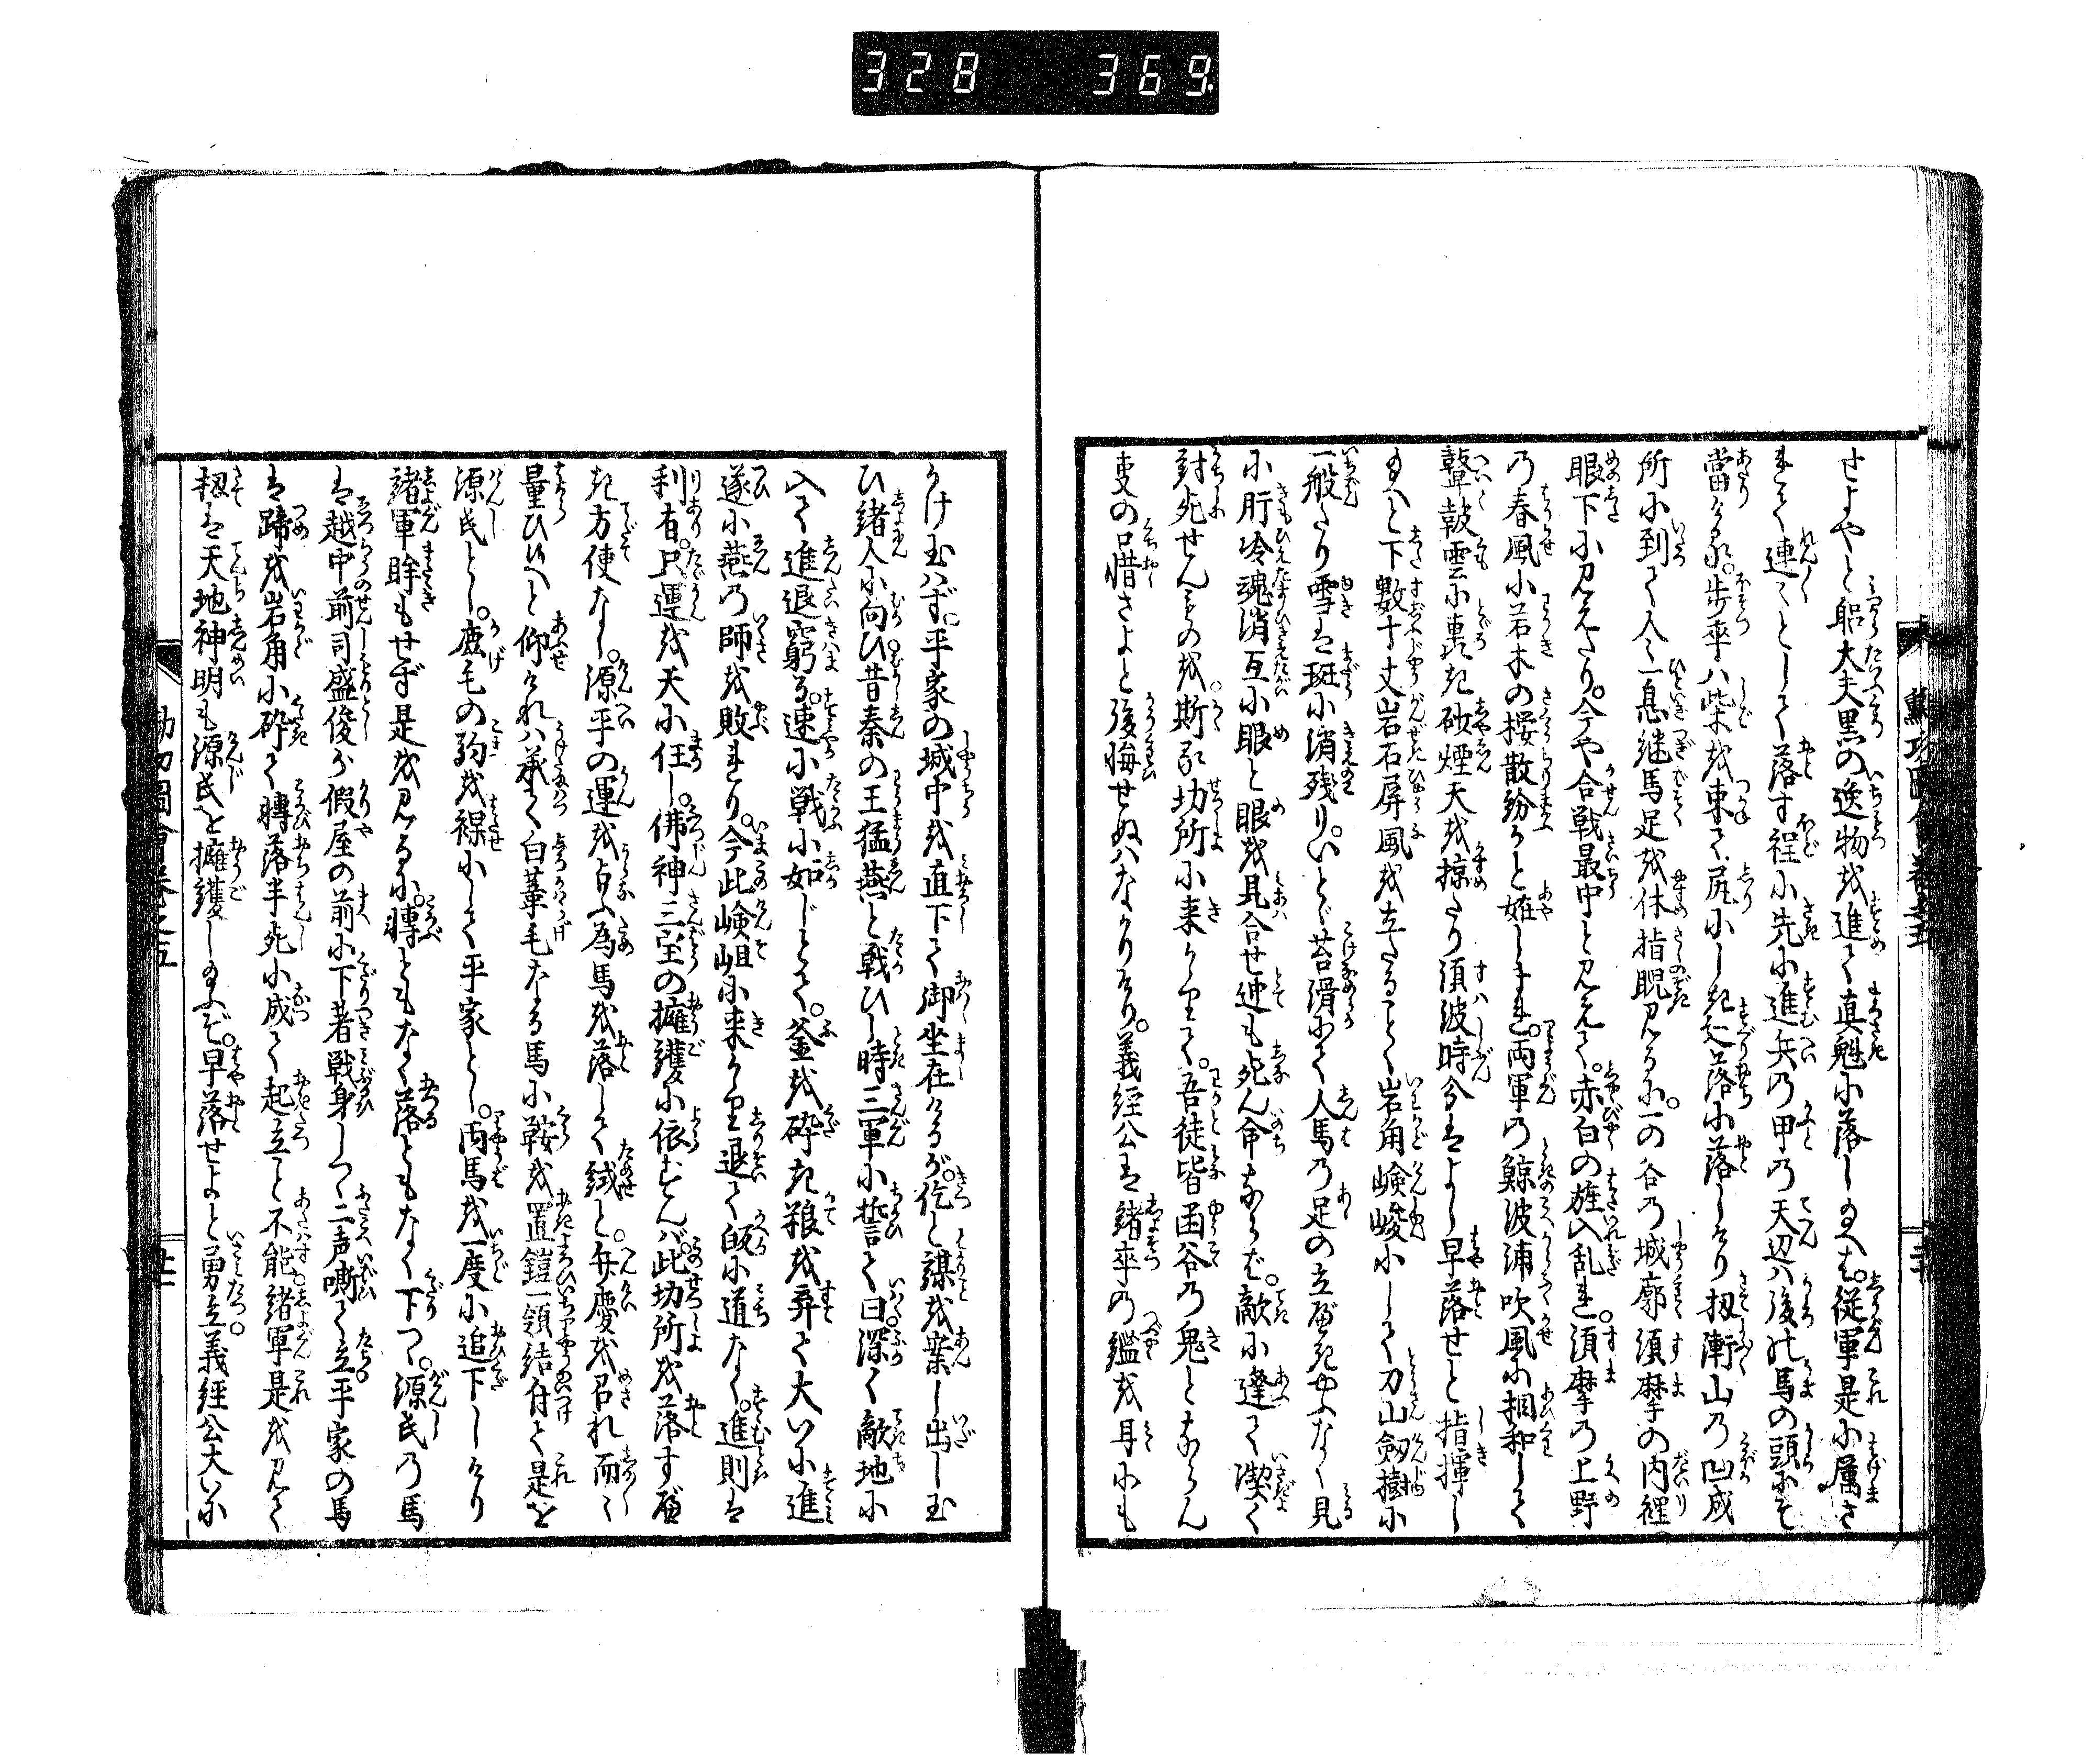 328 369
せよやと躬大夫黒の逸物を進て真魁に落し給へば。従軍是に属さ
れて連々として落す程に先に進兵の甲の天辺ハ後れ馬の頭にぞ
當ける。歩卒ハ柴を束て尻にしき処落に落しけり扨漸山の凹成
所に到て人々一息継馬足を休指覗見るに。一の谷の城廓須摩の内裡
眼下に見えたり。今や合戦最中と見えて。赤白の旌入乱れ。須摩の上野
の春風に若木の桜散紛ふと妖しまれ。両軍の鯨波浦吹風に相和して
鼙鼓雲に轟き砂煙天を掠たり須波時分はよし早落せと指揮し
給へと下数十丈岩石屏風を立たることく岩角嶮峻にして刀山劔樹に
一般たり雪は斑に消残りいとゞ苔滑にて人馬の足の立べき処なく見
に肝冷魂消互に眼と眼を見合せ迚も死ん命ならば。敵に逢て潔く
討死せんものを。斯る切所に来りて。吾徒皆函谷の鬼とならん
事の口惜さよと後悔せぬハなかりけり。義経公は緒卒の鑑を耳にも
かけ玉ハず平家の城中を直下て御坐在けるが。佶と謀を案し出し玉
ひ緒人に向ひ。昔秦の王猛燕と戦ひし時三軍に誓て曰深く敵地に
入て進退窮る。速に戦に如じとて。釜を砕き粮を弃て大いに進
遂に燕の師を敗れり。今此嶮岨に来りて退て皈に道なく。進則は
利有。只運を天に任し。佛神三宝の擁護に依ずんバ。此切所を落す㕝
き方便なし。源平の運を占ふ為馬を落して試と。弁慶を召れ而〻
量ひ候へと仰けれハ承て白葦毛なる馬に鞍を置鎧一領結付て是を
源氏とし。鹿毛の駒を裸にして平家とし。両馬を一度に追下しけり
緒軍眸もせず是を見るに。轉ともなく落ともなく下つ。源氏の馬
は越中前司盛俊が假屋の前に下著戦身しつゝ二声嘶て立平家の馬
は蹄を岩角に砕て轉落半死に成て起立と不能緒軍是を見て
扨は天地神明も源氏を擁護し給ふぞ。早落せよと勇立。義経公大いに
勲功図會巻之五